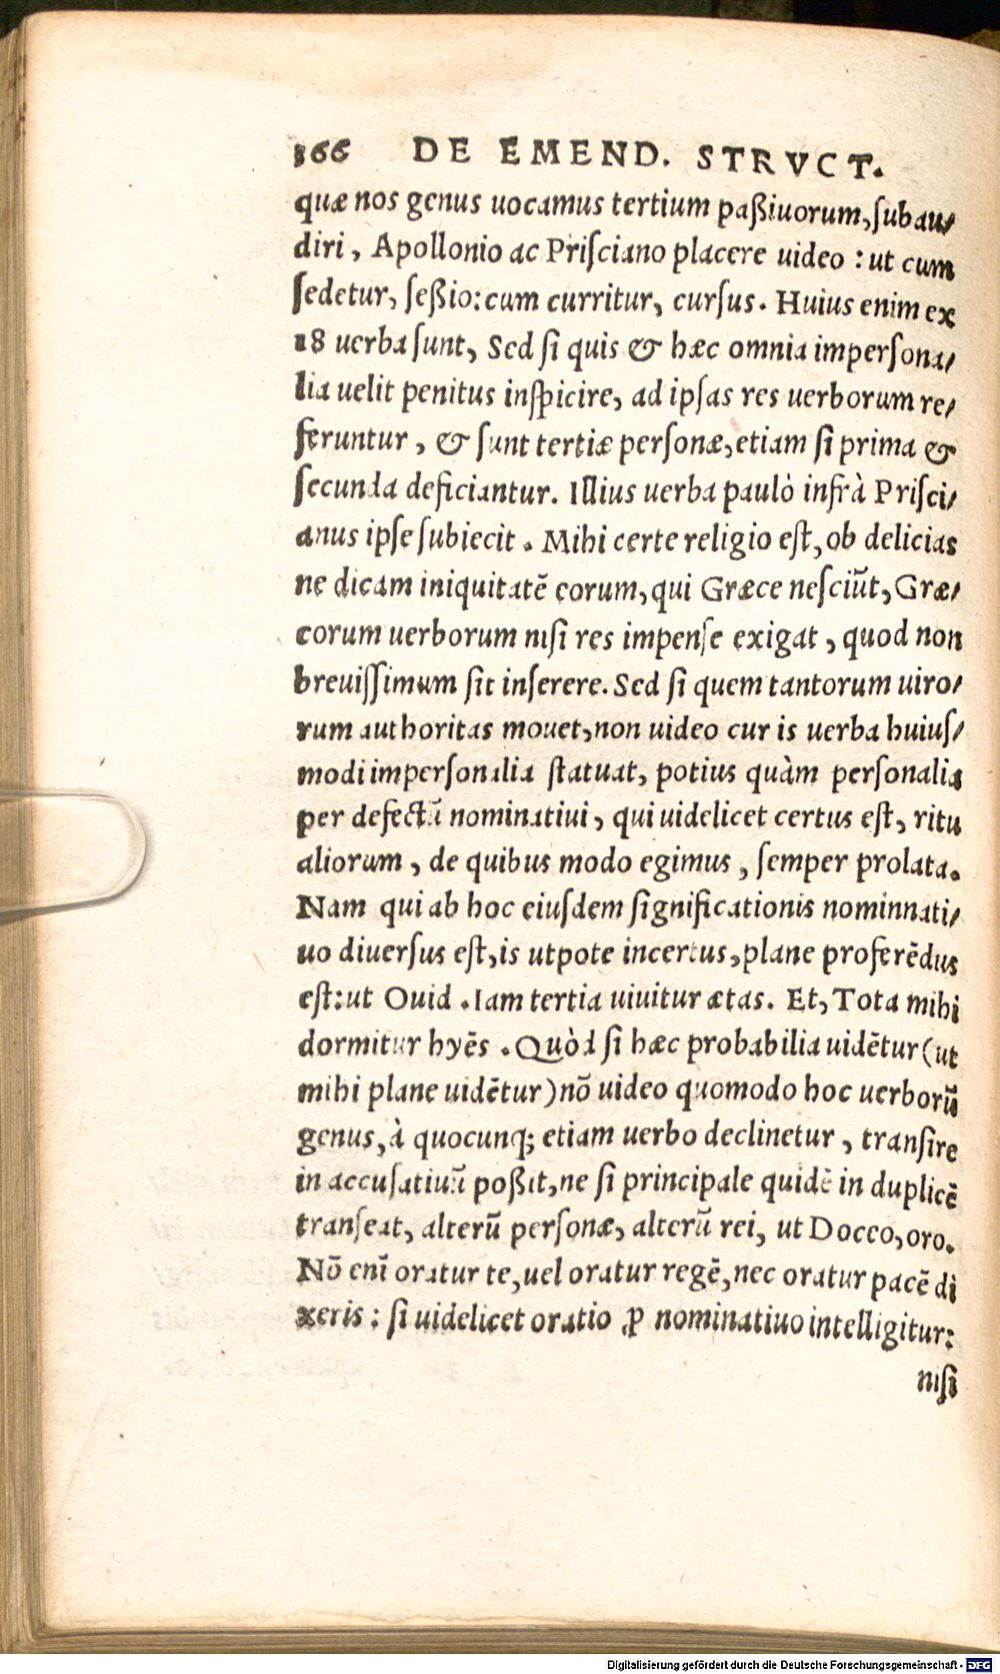 166 DE EMEND. STRVCT.
quæ nos genus uocamus tertium paßiuorum, subau/
diri, Apollonio ac Prisciano placere uideo : ut cum
sedetur, seßio: cum curritur, cursus. Huius enim ex
18 uerba sunt, Sed si quis & hæc omnia impersona/
lia uelit penitus inspicire, ad ipsas res uerborum re/
feruntur, & sunt tertiæ personæ, etiam si prima &
secunda deficiantur. Illius uerba paulò infrà Prisci/
anus ipse subiecit. Mihi certe religio est, ob delicias
ne dicam iniquitatē eorum, qui Græce nesciūt, Græ/
corum uerborum nisi res impense exigat, quod non
breuissimum sit inserere. Sed si quem tantorum uiro/
rum authoritas mouet, non uideo cur is uerba huius/
modi impersonalia statuat, potius quàm personalia
per defectū nominatiui, qui uidelicet certus est, ritu
aliorum, de quibus modo egimus, semper prolata.
Nam qui ab hoc eiusdem significationis nominnati/
uo diuersus est, is utpote incertus, plane proferēdus
est: ut Ouid. Iam tertia uiuitur ætas. Et, Tota mihi
dormitur hyēs. Quòd si hæc probabilia uidētur (ut
mihi plane uidētur) nō uideo quomodo hoc uerborū
genus, à quocunq; etiam uerbo declinetur, transire
in accusatiuū poßit, ne si principale quidē in duplicē
transeat, alterū personæ, alterū rei, ut Doceo, oro.
Nō enī oratur te, uel oratur regē, nec oratur pacē di
xeris : si uidelicet oratio ꝓ nominatiuo intelligitur:
nisi
Digitalisierung gefördert durch die Deutsche Forschungsgemeinschaft - DFG